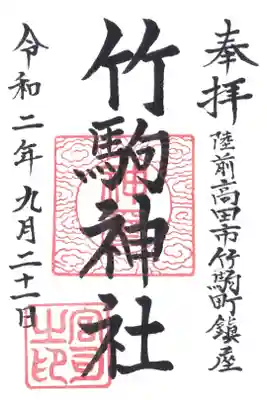 奉拝
陸前高田市竹駒町鎮座
竹駒神社
令和二年九月二十一日
宮司之印